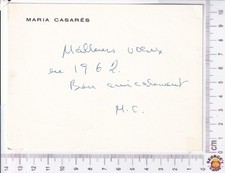 MARIA CASARÈS
Meilleurs vœux
en 1962.
Bien amicalement
M.C.